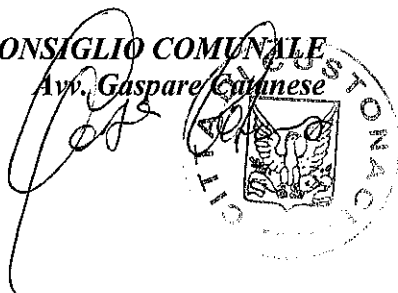 ONSIGLIO COMUNALE
Avv. Gaspare Catanese
CITTÀ DI CUSTONACI